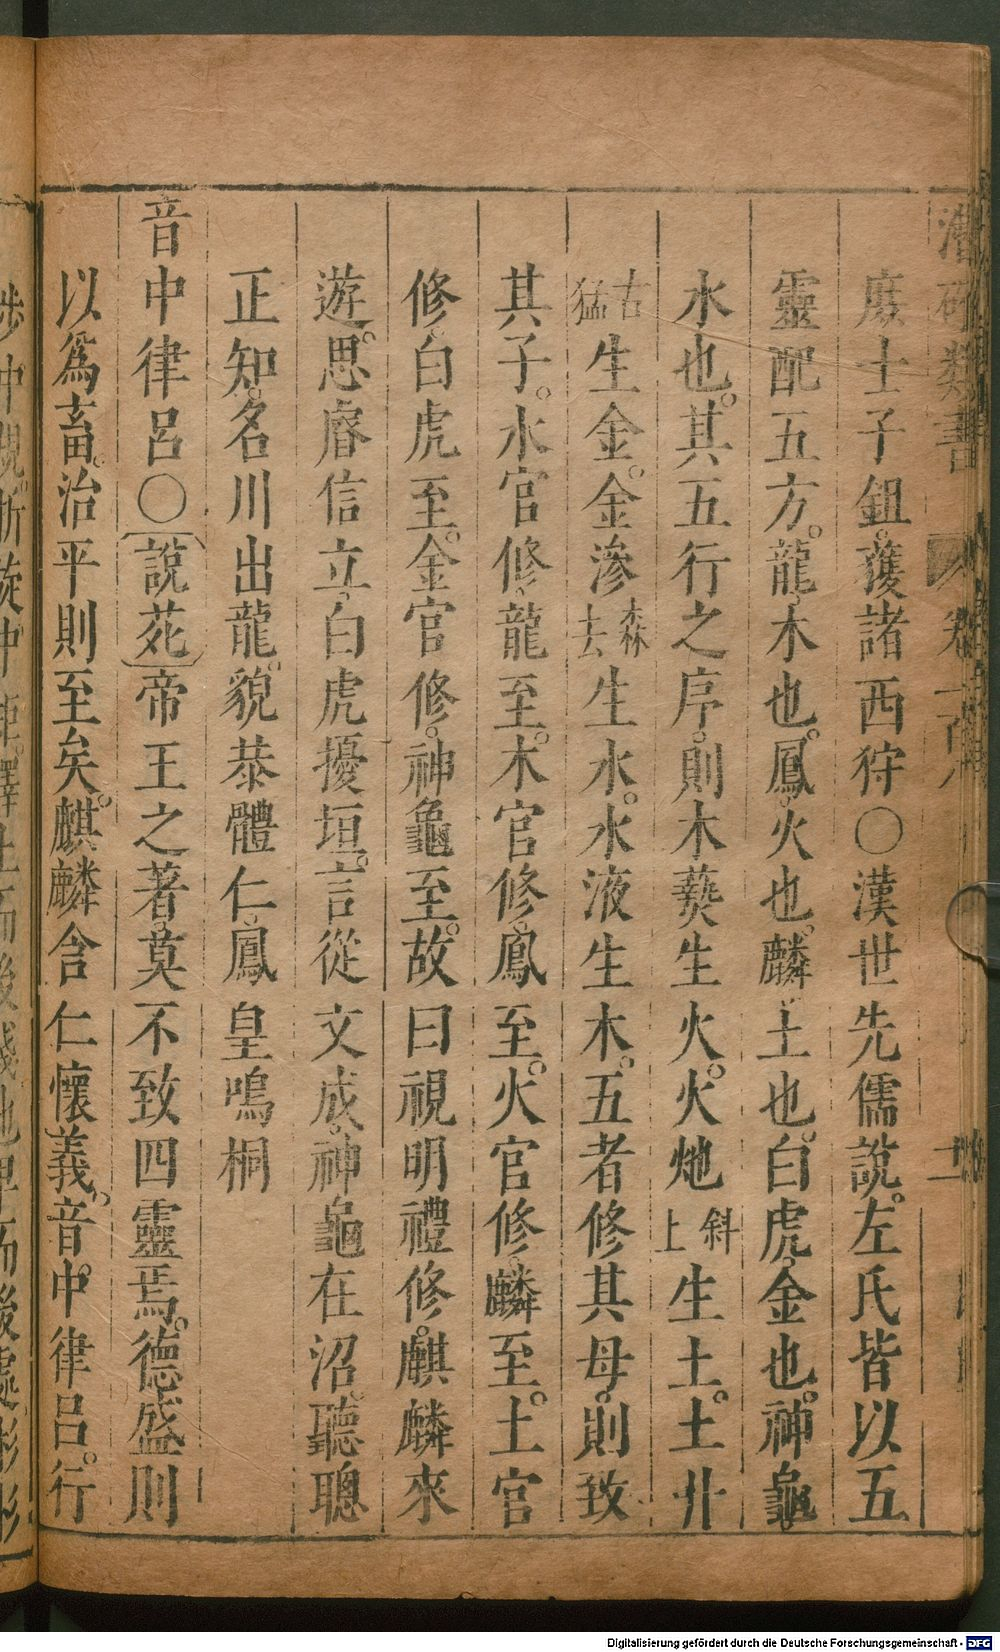 潛確類書 卷一百八 十一
廒士子鉏。獲諸西狩〇漢世先儒說。左氏皆以五
靈配五方。龍木也。鳳火也。麟土也。白虎金也。神龜
水也。其五行之序。則木㷼生火。火灺斜上生土。土廾
古猛生金。金滲森去生水。水液生木。五者修其母。則致
其子。水官修龍至。木官修鳳至。火官修麟至。土官
修白虎至。金官修。神龜至。故曰視明禮修。麒麟來
遊。思睿信立。白虎擾垣。言從文成。神龜在沼。聽聰
正知。名川出龍。貌恭體仁。鳳皇鳴桐
音中律呂〇說苑帝王之著。莫不致四靈焉。德盛則
以爲畜。治平則至矣。麒麟含仁懷義。音中律呂。行
步中規。折旋中矩。擇土而後踐。地平而後處。彬彬
Digitalisierung gefördert durch die Deutsche Forschungsgemeinschaft - DFG